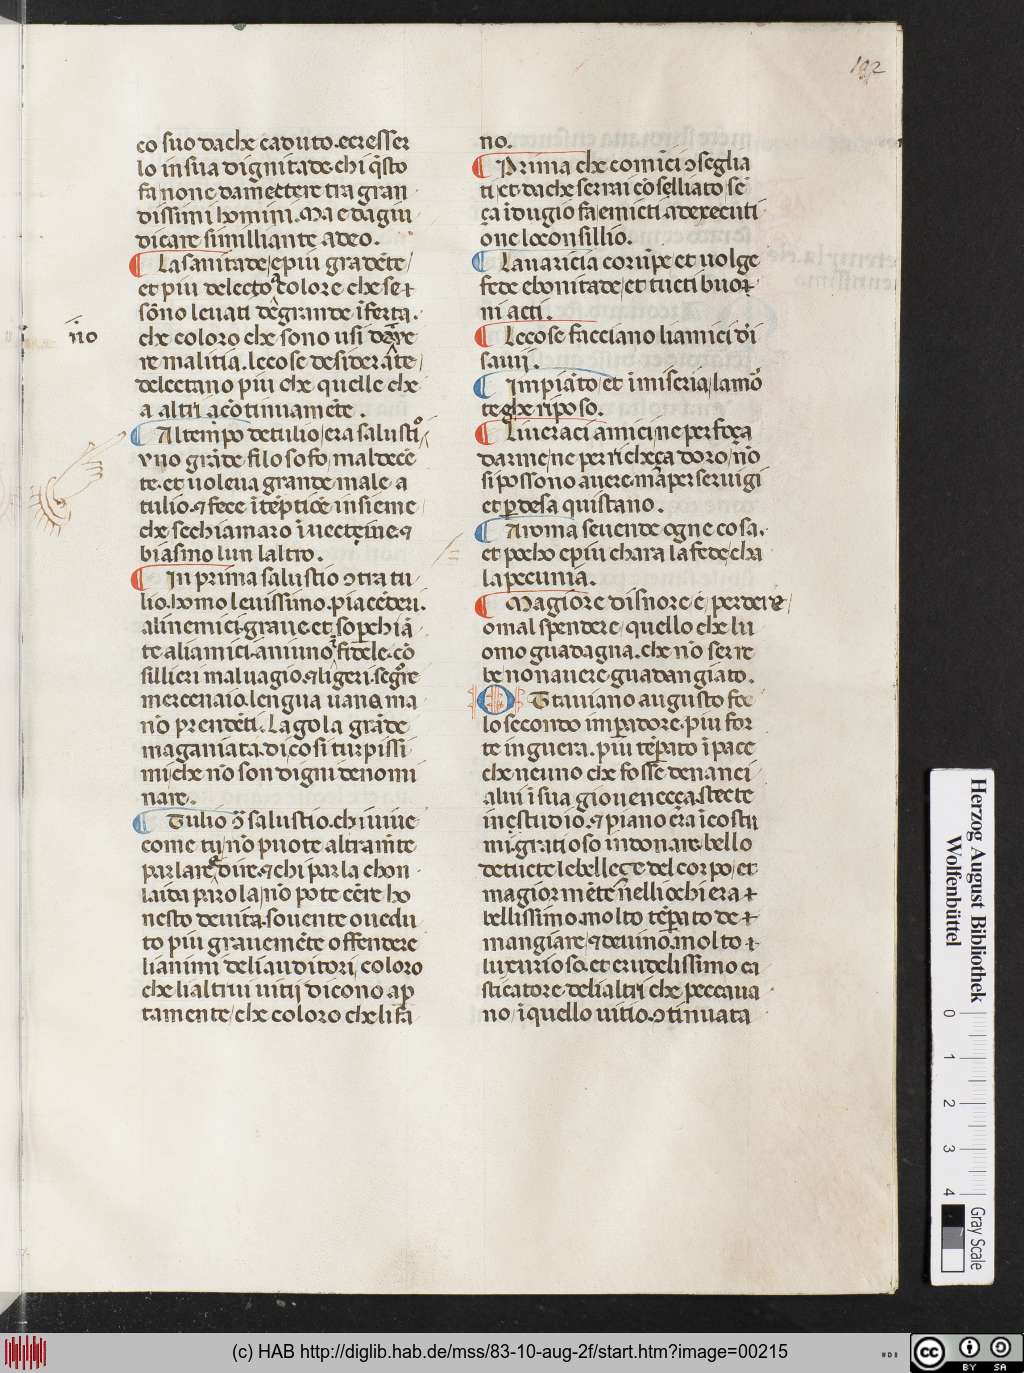 192
co suo da che caduto. ecresser
lo in sua dignitade. chi q̃sto
fa none da mettere tra gran
dissimi homini. Ma e da giu
dicare simillianté a deo.
¶ La sanitade / e piu gradete /
et piu delecto a colore che se
sono leuati de grande iferta.
no
che coloro che sono usi
re malitia. le cose desiderate /
delectano piu che quelle che
a altri acotinuamẽte.
¶ Al tempo de tulio / era salusti /
vno grãde filosofo / mal dece
te. et uoleua grande male a
tulio. ⁊ fece iteptiõe insieme
che se chiamaro iuecteine. ⁊
biasmo lun laltro.
¶ In prima salustio ɔtra tu
lio. homo leuissimo. piaceteri.
ali nemici. graue et sopchiã
te ali amici. animo fidele. cõ
sillieri maluagio. ⁊ ligeri. segre
mercenaio. lengua uana. ma
no prendeti. La gola grãde
maganiata. di cosi turpissi
mi che no son digni denomi
nare.
¶ Tulio ɔ̃ salustio. chi uiue
come tu / no puote altramẽte
parlare / dire. ⁊ chi parla chon
laida parola / no pote cẽre ho
nesto de uita. souente o uedu
to piu grauemẽte offendere
lianimi deli auditori / coloro
che li altrui uitij dicono ap
tamente / che coloro che li fa
no.
¶ Prima che comici ɔseglia
ti et da che serrai cõselliato sẽ
ça idugio fa emicti ad executi
one lo consillio.
¶ Lauaricia corupe et uolge
fede e bonitade / et tucti buo
ni acti.
¶ Le cose facciano li amici di
saui.
¶ Impiato / et i miseria / lamo
te ghe riposo.
¶ Li ueraci amici / ne per foça
darme / ne per richeça doro / nõ
si possono auere. ma per seruigi
et p desa quistano.
¶ A roma se uende ogne cosa.
et pocho e piu chara la fede / cha
la pecunia.
¶ Magiore disnore e / perdere /
o mal spendere / quello che lu
omo guadagna. che no serre
be non auere guadangiato.
Ottauiano augusto foe
lo secondo impadore. piu for
te in guera. piu tẽpato i pace
che neuno che fosse denanci
a lui i sua giouenecça. stecte
in estudio. ⁊ piano era i costu
mi. gratioso in donare. bello
de tucte le bellege del corpo / et
magiormẽte nelli ochi era
bellissimo. molto tẽpato de
mangiare / ⁊ de uino. molto
luxurioso. et crudelissimo ca
sticatore deli altri che peccaua
no / i quello uitio. ɔtinuata
Herzog August Bibliothek
Wolfenbüttel
0 1 2 3 4
Gray Scale
(c) HAB http://diglib.hab.de/mss/83-10-aug-2f/start.htm?image=00215
cc BY SA